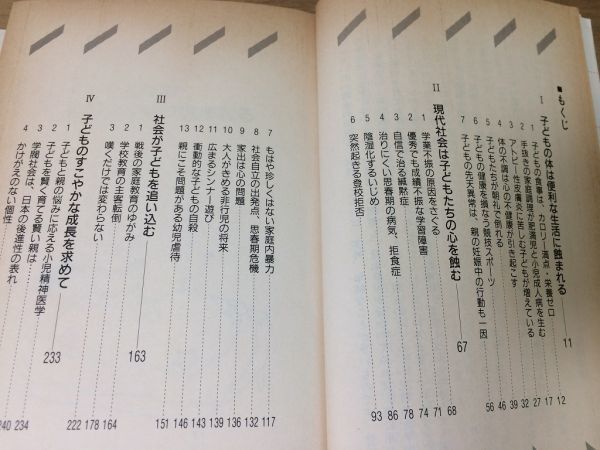 ■もくじ
Ⅰ 子どもの体は便利な生活に蝕まれる 11
1 子どもの食事は、カロリー満点・栄養ゼロ 12
2 手抜きの家庭調理が肥満児と小児成人病を生む 17
3 アトピー性皮膚炎に苦しむ子どもが増えている 27
4 体の不調は心の不健康が引き起こす 32
5 子どもたちが朝礼で倒れる 39
6 子どもの健康を損なう競技スポーツ 46
7 子どもの先天異常は、親の妊娠中の行動も一因 56
Ⅱ 現代社会は子どもたちの心を蝕む 67
1 学業不振の原因をさぐる 68
2 優秀でも成績不振な学習障害 71
3 自信で治る緘黙症 74
4 治りにくい思春期の病気、拒食症 78
5 陰湿化するいじめ 86
6 突然起きる登校拒否 93
7 もはや珍しくはない家庭内暴力 117
8 社会自立の出発点、思春期危機 132
9 家出は心の問題 136
10 大人がきめる非行児の将来 139
11 広まるシンナー遊び 143
12 衝動的な子どもの自殺 146
13 親にこそ問題がある幼児虐待 151
Ⅲ 社会が子どもを追い込む 163
1 戦後の家庭教育のゆがみ 164
2 学校教育の主客転倒 178
3 嘆くだけでは変わらない 222
Ⅳ 子どものすこやかな成長を求めて 233
1 子どもと親の悩みに応える小児精神医学 234
2 子どもを賢く育てる賢い親は 240
3 学閥社会は、日本の後進性の表れ
4 かけがえのない個性